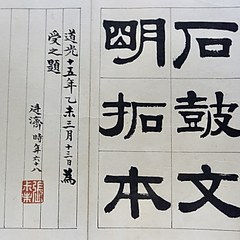 石鼓文
明拓本
道光十五年乙未三月十三日蔿
受之題
廷濟時年六十八
張廷
未未